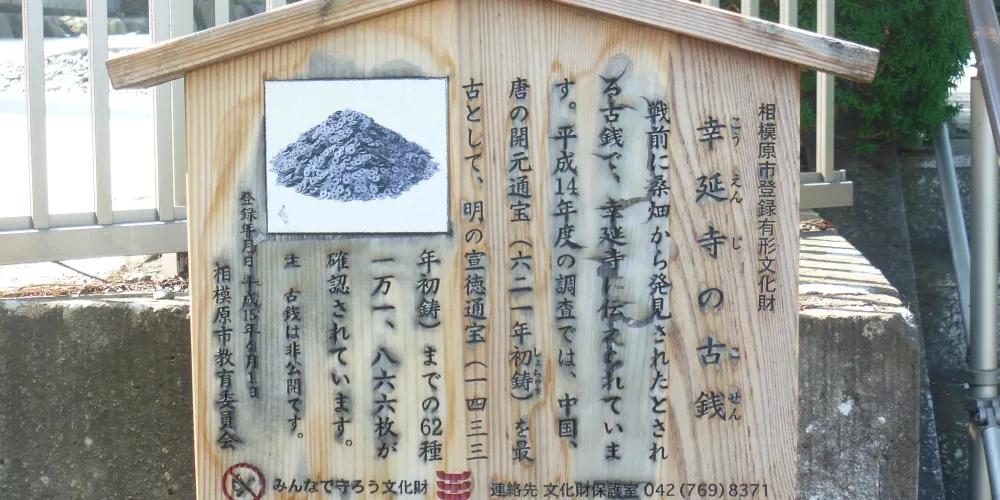 相模原市登録有形文化財
幸延寺の古銭
こうえんじ こせん
戦前に桑畑から発見されたとされ
る古銭で、幸延寺に伝えられていま
す。平成14年度の調査では、中国、
唐の開元通宝（六二一年初鋳）を最
しょちゅう
古として、明の宣徳通宝（一四三三
年初鋳）までの62種
一万一、八六六枚が
確認されています。
注 古銭は非公開です。
登録年月日 平成15年4月1日
相模原市教育委員会
みんなで守ろう文化財
連絡先 文化財保護室 042(769)8371